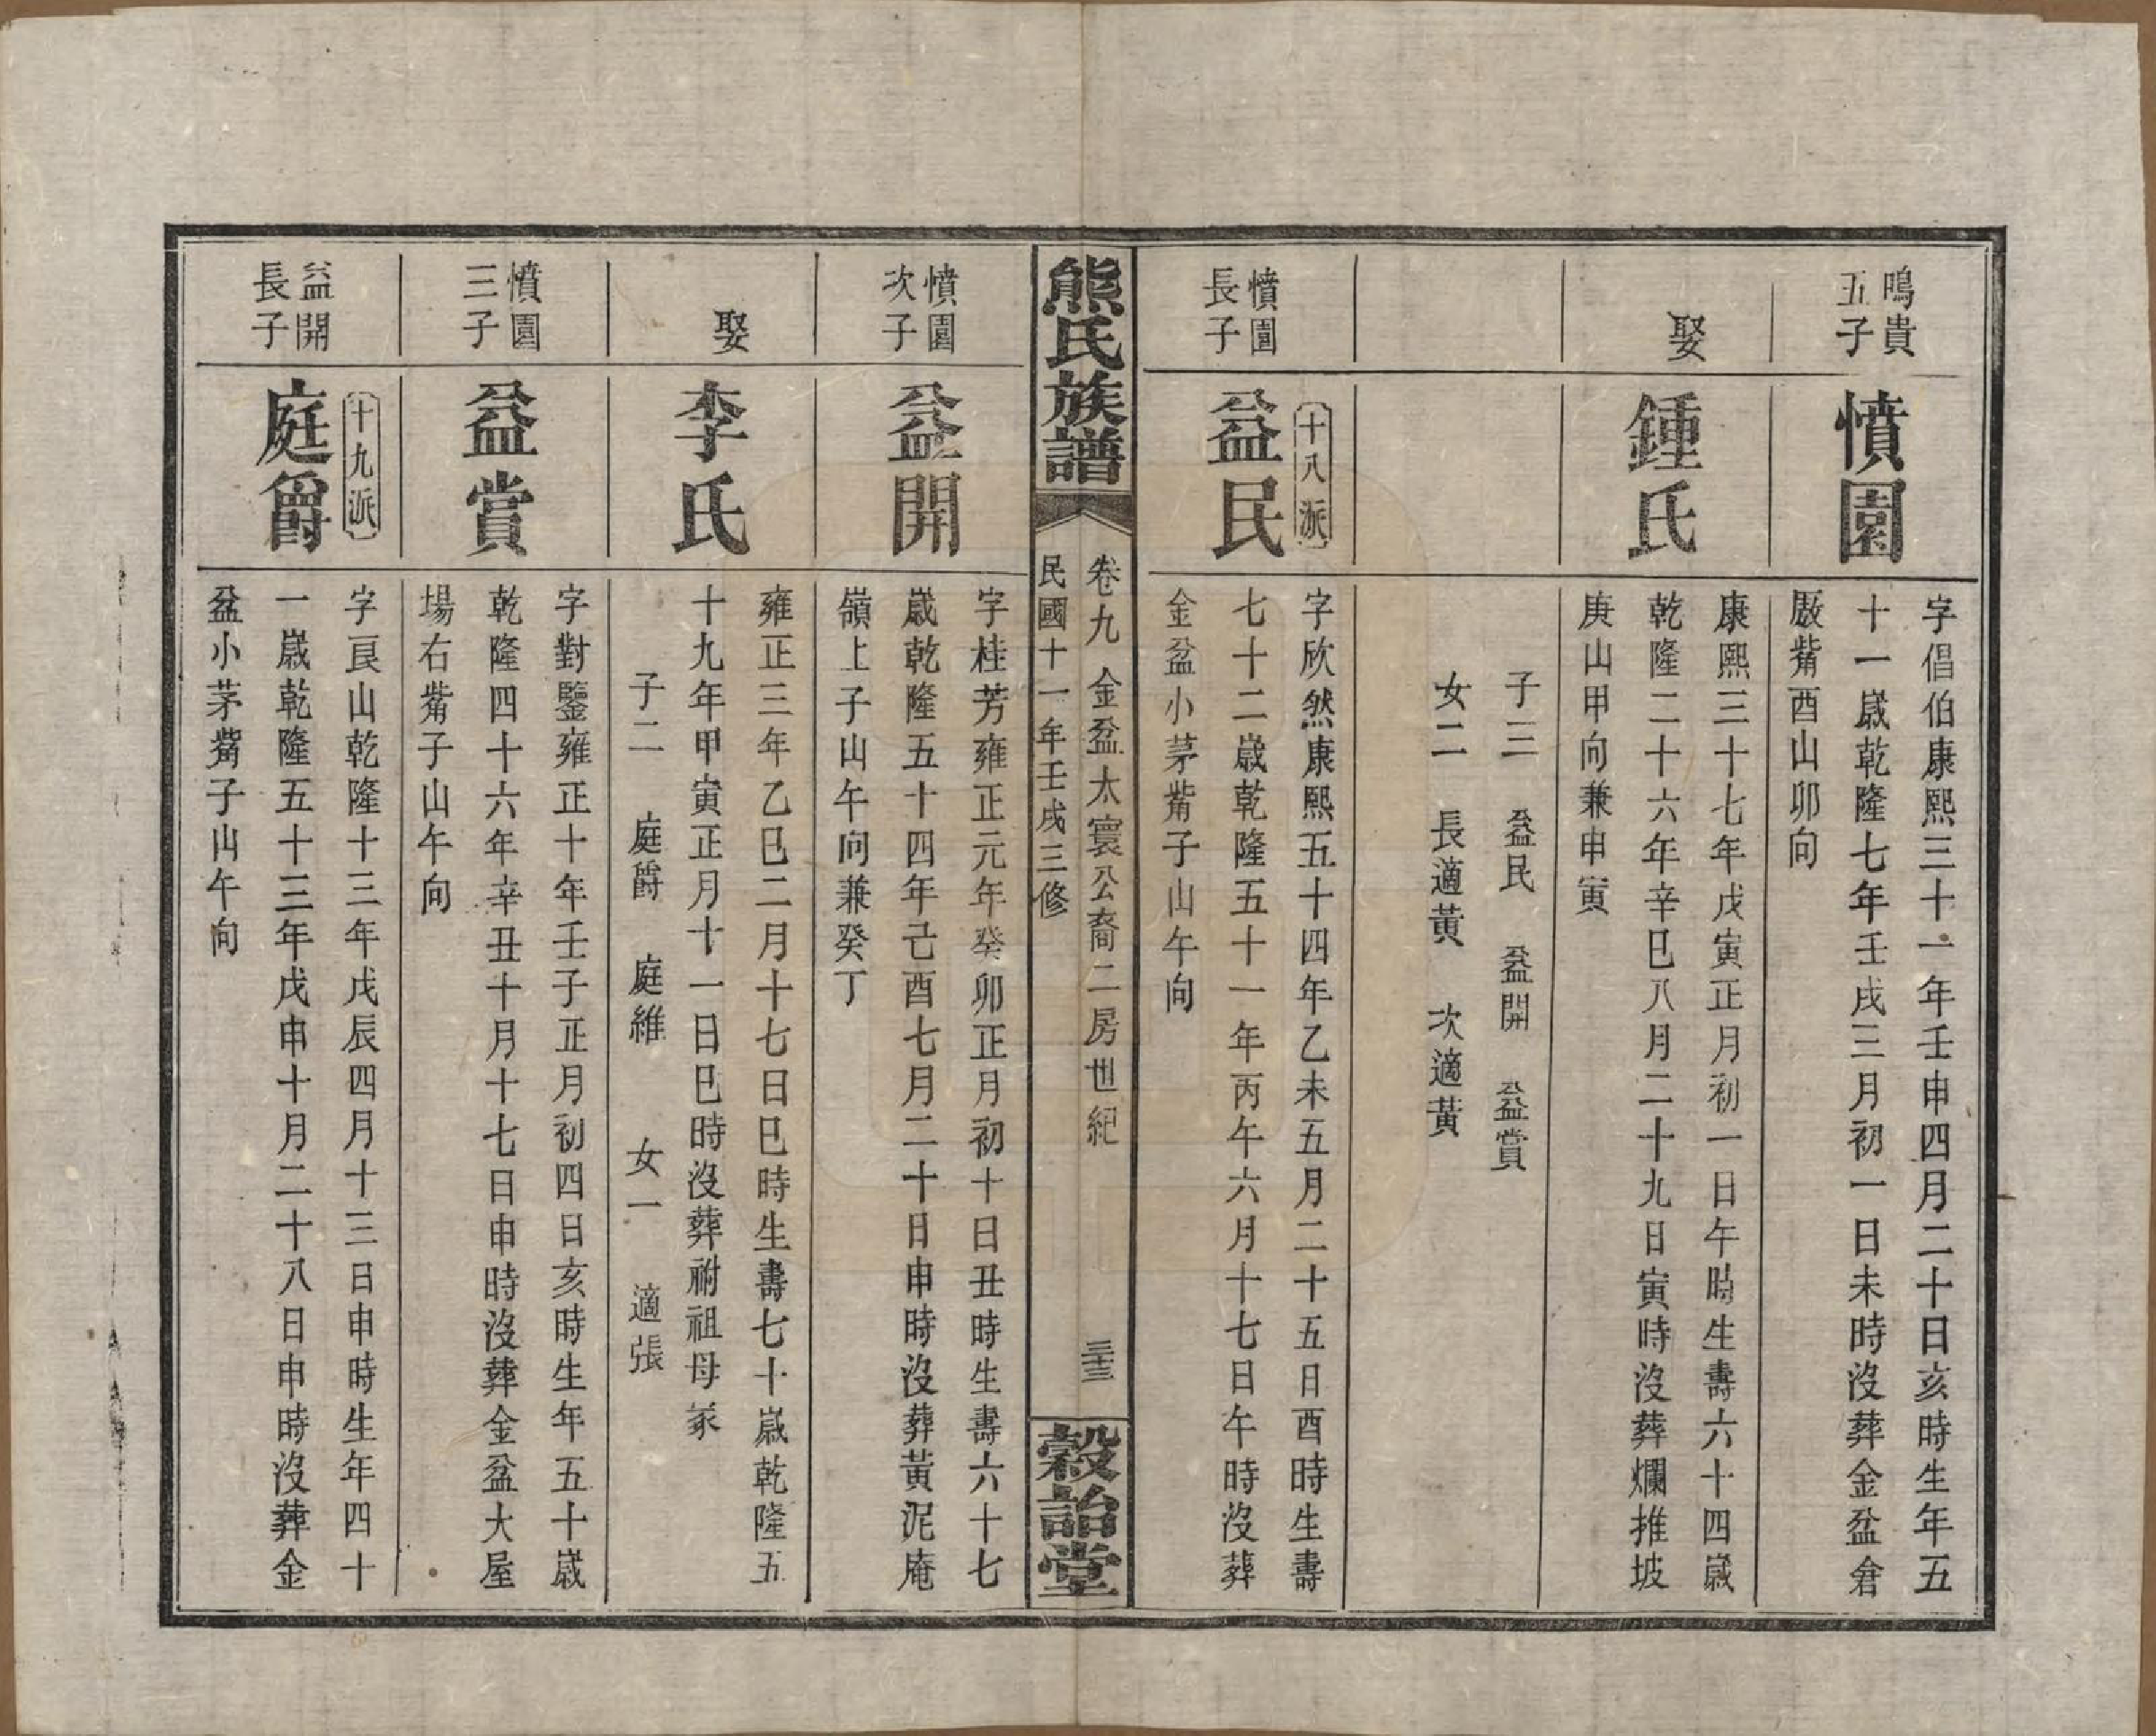 鳴貴
五子
憤園
字倡伯康熙三十一年壬申四月二十日亥時生年五
十一歲乾隆七年壬戌三月初一日未時沒葬金盆倉
厫觜酉山卯向
娶
鍾氏
康熙三十七年戊寅正月初一日午時生壽六十四歲
乾隆二十六年辛巳八月二十九日寅時沒葬爛推坡
庚山甲向兼申寅
子三　益民　益開　益賞
女二　長適黃　次適黃
憤園
長子
十八派
益民
字欣然康熙五十四年乙未五月二十五日酉時生壽
七十二歲乾隆五十一年丙午六月十七日午時沒葬
金盆小茅觜子山午向
熊氏族譜
卷九　金盆太寰公裔二房世紀
民國十一年壬戌三修
三十三
穀詒堂
憤園
次子
益開
字桂芳雍正元年癸卯正月初十日丑時生壽六十七
歲乾隆五十四年己酉七月二十日申時沒葬黃泥庵
嶺上子山午向兼癸丁
娶
李氏
雍正三年乙巳二月十七日巳時生壽七十歲乾隆五
十九年甲寅正月十一日巳時沒葬祔祖母冢
子二　庭爵　庭維　女一　適張
憤園
三子
益賞
字對鑒雍正十年壬子正月初四日亥時生年五十歲
乾隆四十六年辛丑十月十七日申時沒葬金盆大屋
場右觜子山午向
益開
長子
十九派
庭爵
字良山乾隆十三年戊辰四月十三日申時生年四十
一歲乾隆五十三年戊申十月二十八日申時沒葬金
盆小茅觜子山午向